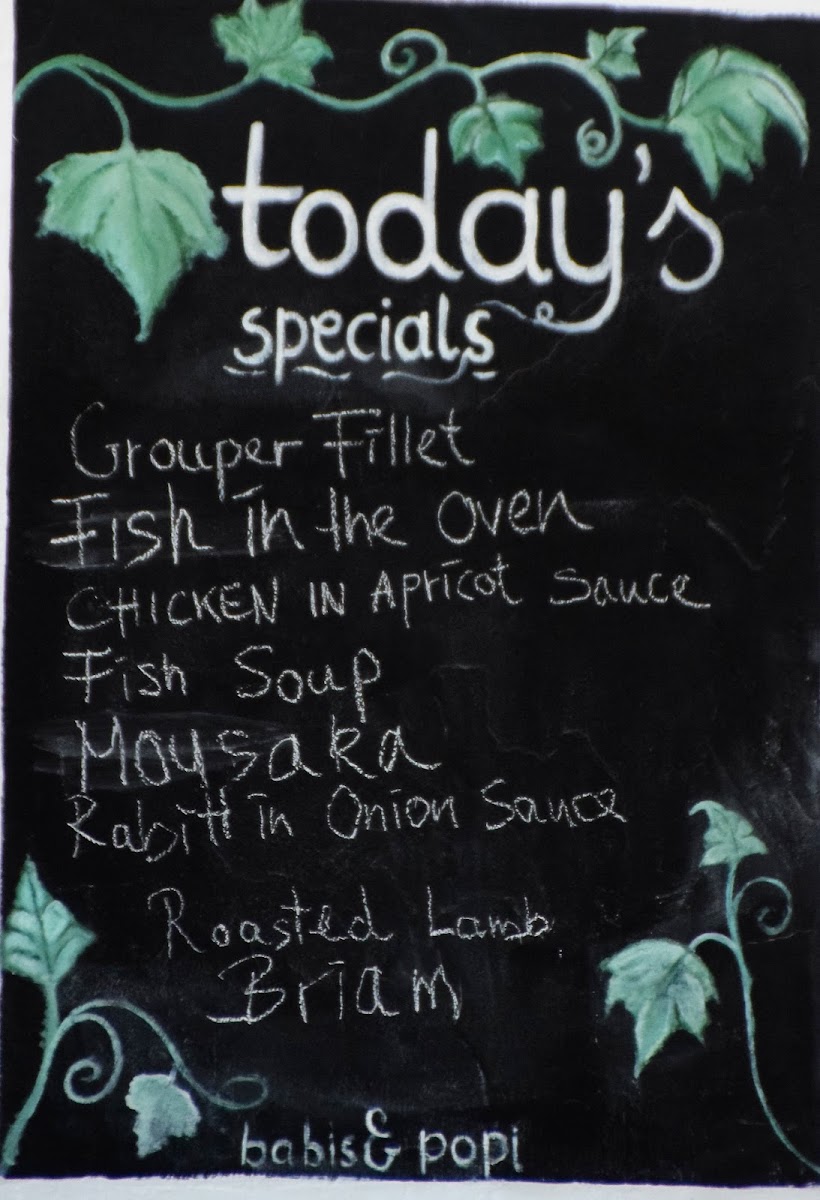 today's
specials
Grouper Fillet
Fish in the oven
CHICKEN IN Apricot Sauce
Fish Soup
Moysaka
Rabitt in Onion Sauce
Roasted Lamb
Briam
babis & popi